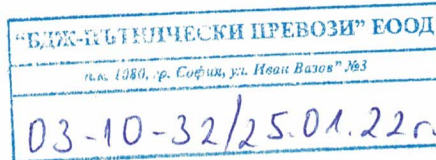 “БДЖ-ПЪТНИЧЕСКИ ПРЕВОЗИ” ЕООД
п.к. 1080, гр. София, ул. Иван Вазов” №3
03-10-32/25.01.22г.